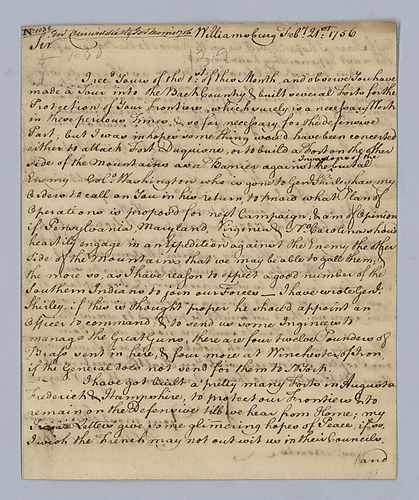 Govr Dinwiddie to Govr Morris 1756
Williamsburg Feb.y 21st 1756
Sir
I recd Yours of the 1st of this Month, and observe You have
made a Tour into the Back County & built several Forts for the
Protection of Your Frontiers, which surely is a necessary Work
in these perilous Times, & so far necessary for the defensive
Part, but I was in hopes something would have been concerted
either to attack Fort Duquesne, or to build a Fort on the other
Side of the Mountains as a Barrier against the
Invasions of the
Enemy Colo Washington who is gone to Genl Shirley has my
Orders to call on You in his return to know what Plan of
Operations is propos'd for next Campaign, & am of Opinion
if Pensylvania, Maryland, Virginia & No Carolina shou'd
heartily engage in an Expedition against the Enemy the other
Side of the Mountains that we may be able to gall them, &
the more so, as I have reason to expect a good number of the
Southern Indians to join our Forces — I have wrote Genl
Shirley if this is thought proper he should appoint an
Officer to command & to send us some Engineers to
manage the Great Guns, there are four twelve Pounders of
Brass sent in here, & four more at Winchester of Iron,
if the General does not send for them to N. York.
I have got built a pretty many Forts in Augusta
Frederick & Hampshire, to protect our Frontiers & to
remain on the Defensive till we hear from Home; my
Letters give some glimmering hopes of Peace, if so,
I wish the French may not out wit us in their Councils,
and